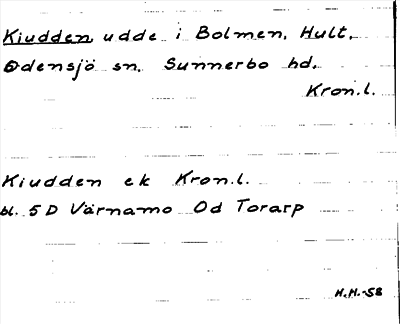 Kiudden, udde i Bolmen, Hult,
Odensjö sn, Sunnerbo hd,
Kron.l.
Kiudden ek Kron.l.
bl. 5 D Värnamo Od Torarp
H.H.-58